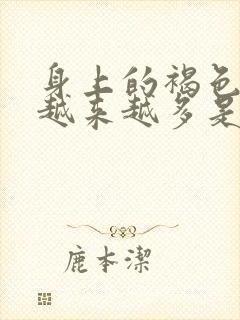 身上的褐色
越来越多是
鹿本潔